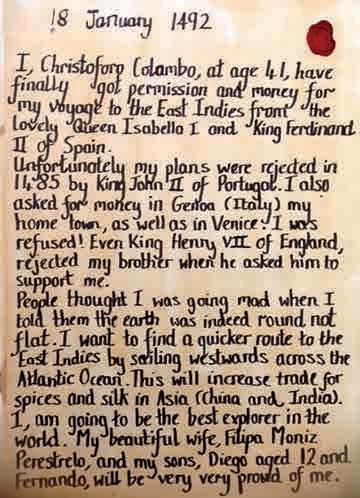 18 January 1492
I, Christoforo Colombo, at age 41, have
finally got permission and money for
my voyage to the East Indies from the
lovely Queen Isabella I and King Ferdinand
II of Spain.
Unfortunately my plans were rejected in
1485 by King John II of Portugal. I also
asked for money in Genoa (Italy) my
home town, as well as in Venice. I was
refused! Even King Henry VII of England,
rejected my brother when he asked him to
support me.
People thought I was going mad when I
told them the earth was indeed round not
flat. I want to find a quicker route to the
East Indies by sailing westwards across the
Atlantic Ocean. This will increase trade for
spices and silk in Asia (China and, India).
I, am going to be the best explorer in the
world. My beautiful wife, Filipa Moniz
Perestrelo, and my sons, Diego aged 12 and
Fernando, will be very very proud of me.